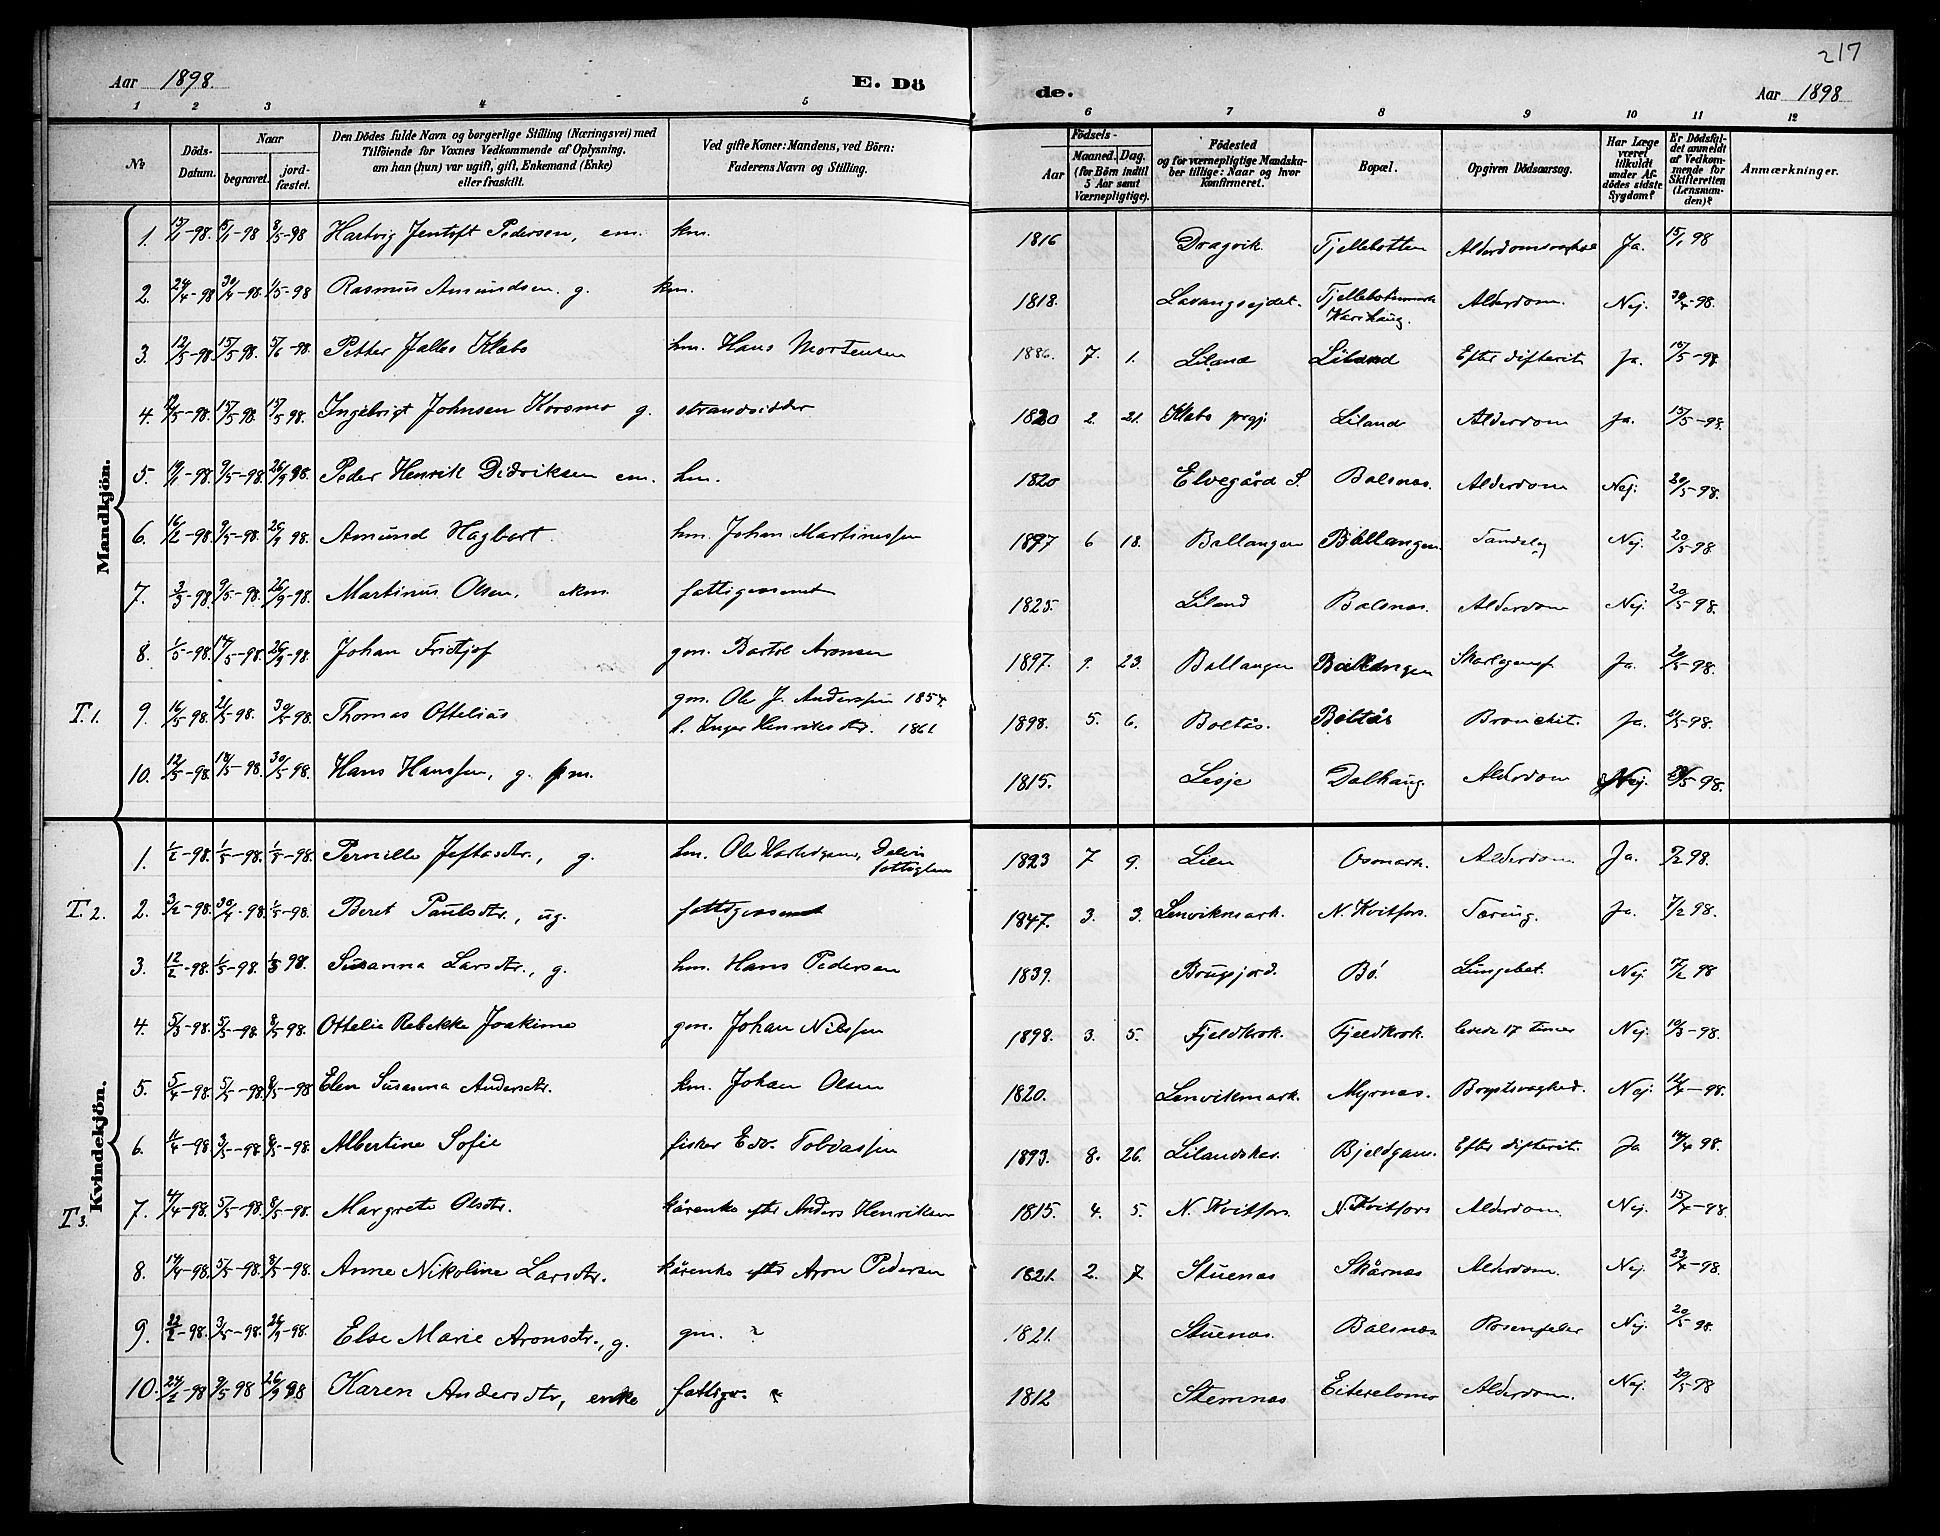 217
Aar 1898. E. Dö
de. Aar 1898
1 2 3 4 5 6 7 8 9 10 11 12
No
Döds-Datum.
Naar
begravet.
jord-fæstet.
Den Dödes fulde Navn og borgerlige Stilling (Næringsvei) med
Tilföiende for Voxnes Vedkommende af Oplysning,
om han (hun) var ugift, gift, Enkemand (Enke)
eller fraskilt.
Ved gifte Koner: Mandens, ved Börn:
Faderens Navn og Stilling.
Födsels-
Aar
Maaned. Dag.
(for Börn indtil
5 Aar samt
Værnepligtige).
Födested
og for værnepligtige Mandska-
ber tillige: Naar og hvor
Konfirmeret.
Bopæl.
Opgiven Dödsaarsag.
Har Læge
været
tilkaldt
under Af-
dödes sidste
Sygdom?
Er Dödsfal-
det anmeldt
af Vedkom-
mende for
Skifteretten
(Lensman-
den)?
Anmærkninger.
Mandkjön.
1. 13/1-98. 15/1-98 8/5-98 Hartvig Jentoft Pedersen, em. km. 1816 Dragvik Fjellebotten Ja. 15/1 98
2. 24/4-98 30/4-98. 1/5-98 Rasmus Amundsen. g. km. 1818. Lavangsejdet. Alderdom. Nej. 30/4-98.
3. 12/5-98. 15/5 98. 5/6-98. Petter Jallas Klabo hm. Hans Mortensen 1886. 7. 1. Liland Liland Efter difterit Ja. 15/5-98.
4. 15/5 98. 15/5 98. Ingebrigt Johnsen Korsmo g. strandsidder 1820 2. 21. Klabo prgj. Liland Alderdom Ja. 15/5-98.
5. 19/1-98. 9/5-98. 26/9 98. Peder Henrik Didriksen em. hm. 1820 Elvegård S. Balsnas. Alderdom Nej. 20/5-98.
6. 16/2-98. 9/5-98. 26/9 98. Amund Hagbart. hm. Johan Martinussen 1897 6 18. Ballangen Ballangen. Nej. 20/5-98
7. 3/3-98. 9/5-98. 26/9-98. Martinus Olsen, ekm. 1825. Liland Balsnas. Alderdom Nej. 20/5-98.
8. 1/5-98. 14/5-98. 26/9-98. Johan Fridtjof gm. Bartol Aronsen 1897. 9. 23. Ballangen Ballangen Ja. 20/5-98.
T.1. 9. 16/5-98. 21/5-98. 30/5-98. Thomas Ottelias gm. Ole J. Anderssen 1854.
h. Inger Henriksdtr. 1861 1898. 5. 6. Boltås. Boltås Bronchit. Ja. 21/5-98.
10. 12/5-98. 18/5-98. 30/5-98. Hans Hanssen, g. 1815. Lesje Dalhaug. Alderdom Nej.
Kvindekjön.
1. 1/2-98. 1/5-98. 1/5-98. Pernille Jeftasdtr., g. 1823 7 9. Lien Osmark. Alderdom Ja. 7/2 98.
T.2. 2. 3/2-98. 30/4-98. 1/5-98. Beret Paulsdtr., ug. 1847. 3. 3. Lenvikmark. N. Kvitfors. Tæring. Ja. 7/2 98.
3. 12/2-98. 1/5-98. 1/5 98. Susanna Larsdtr., g. hm. Hans Pedersen 1839. Bø Lungebet. Nej. 98
4. 5/3-98. 5/5-98. 8/5 98. Ottelie Rebekke Joakime gm. Johan Nilssen 1898. 3. 5. Fjeldkrok. Fjeldkrok. levede 17 timer Nej. 10/3-98.
5. 5/4-98. 5/5-98. 8/5-98 Elen Susanna Andersdtr. km. Johan Olsen 1820. Lenvikmark. Myrnas. Brystsvaghed. Nej. 12/4-98.
6. 11/4-98. 3/5-98. 8/5-98. Albertine Sofie fisker Edv. Tobiassen 1893. 8. 26. Efter difterit. Ja 14/4 98.
T3. 7. 4/4-98. 5/5-98. 8/5-98. Margrete Olsdtr. kårenke efter Anders Henriksen 1815. 4. 5. N. Kvitfors. N. Kvitfors Alderdom. Nej. 15/4-98.
8. 14/4-98. 5/5-98. 8/5-98. Anne Nikoline Larsdtr. kårenke efter Aron Pedersen 1821. 2. 7 Stuenas Skårnas Alderdom. Nej. 23/4-98.
9. 22/2-98. 3/5-98. 26/9-98. Else Marie Aronsdtr., g. gm. ? 1821. Stuenas. Balsnas Rosenfeber Nej. 20/5 98.
10. 24/2-98 9/5 98 26/9 98 Karen Andersdtr, enke fattigv. ? 1812 Stemnas Alderdom. Nej. 20/5-98